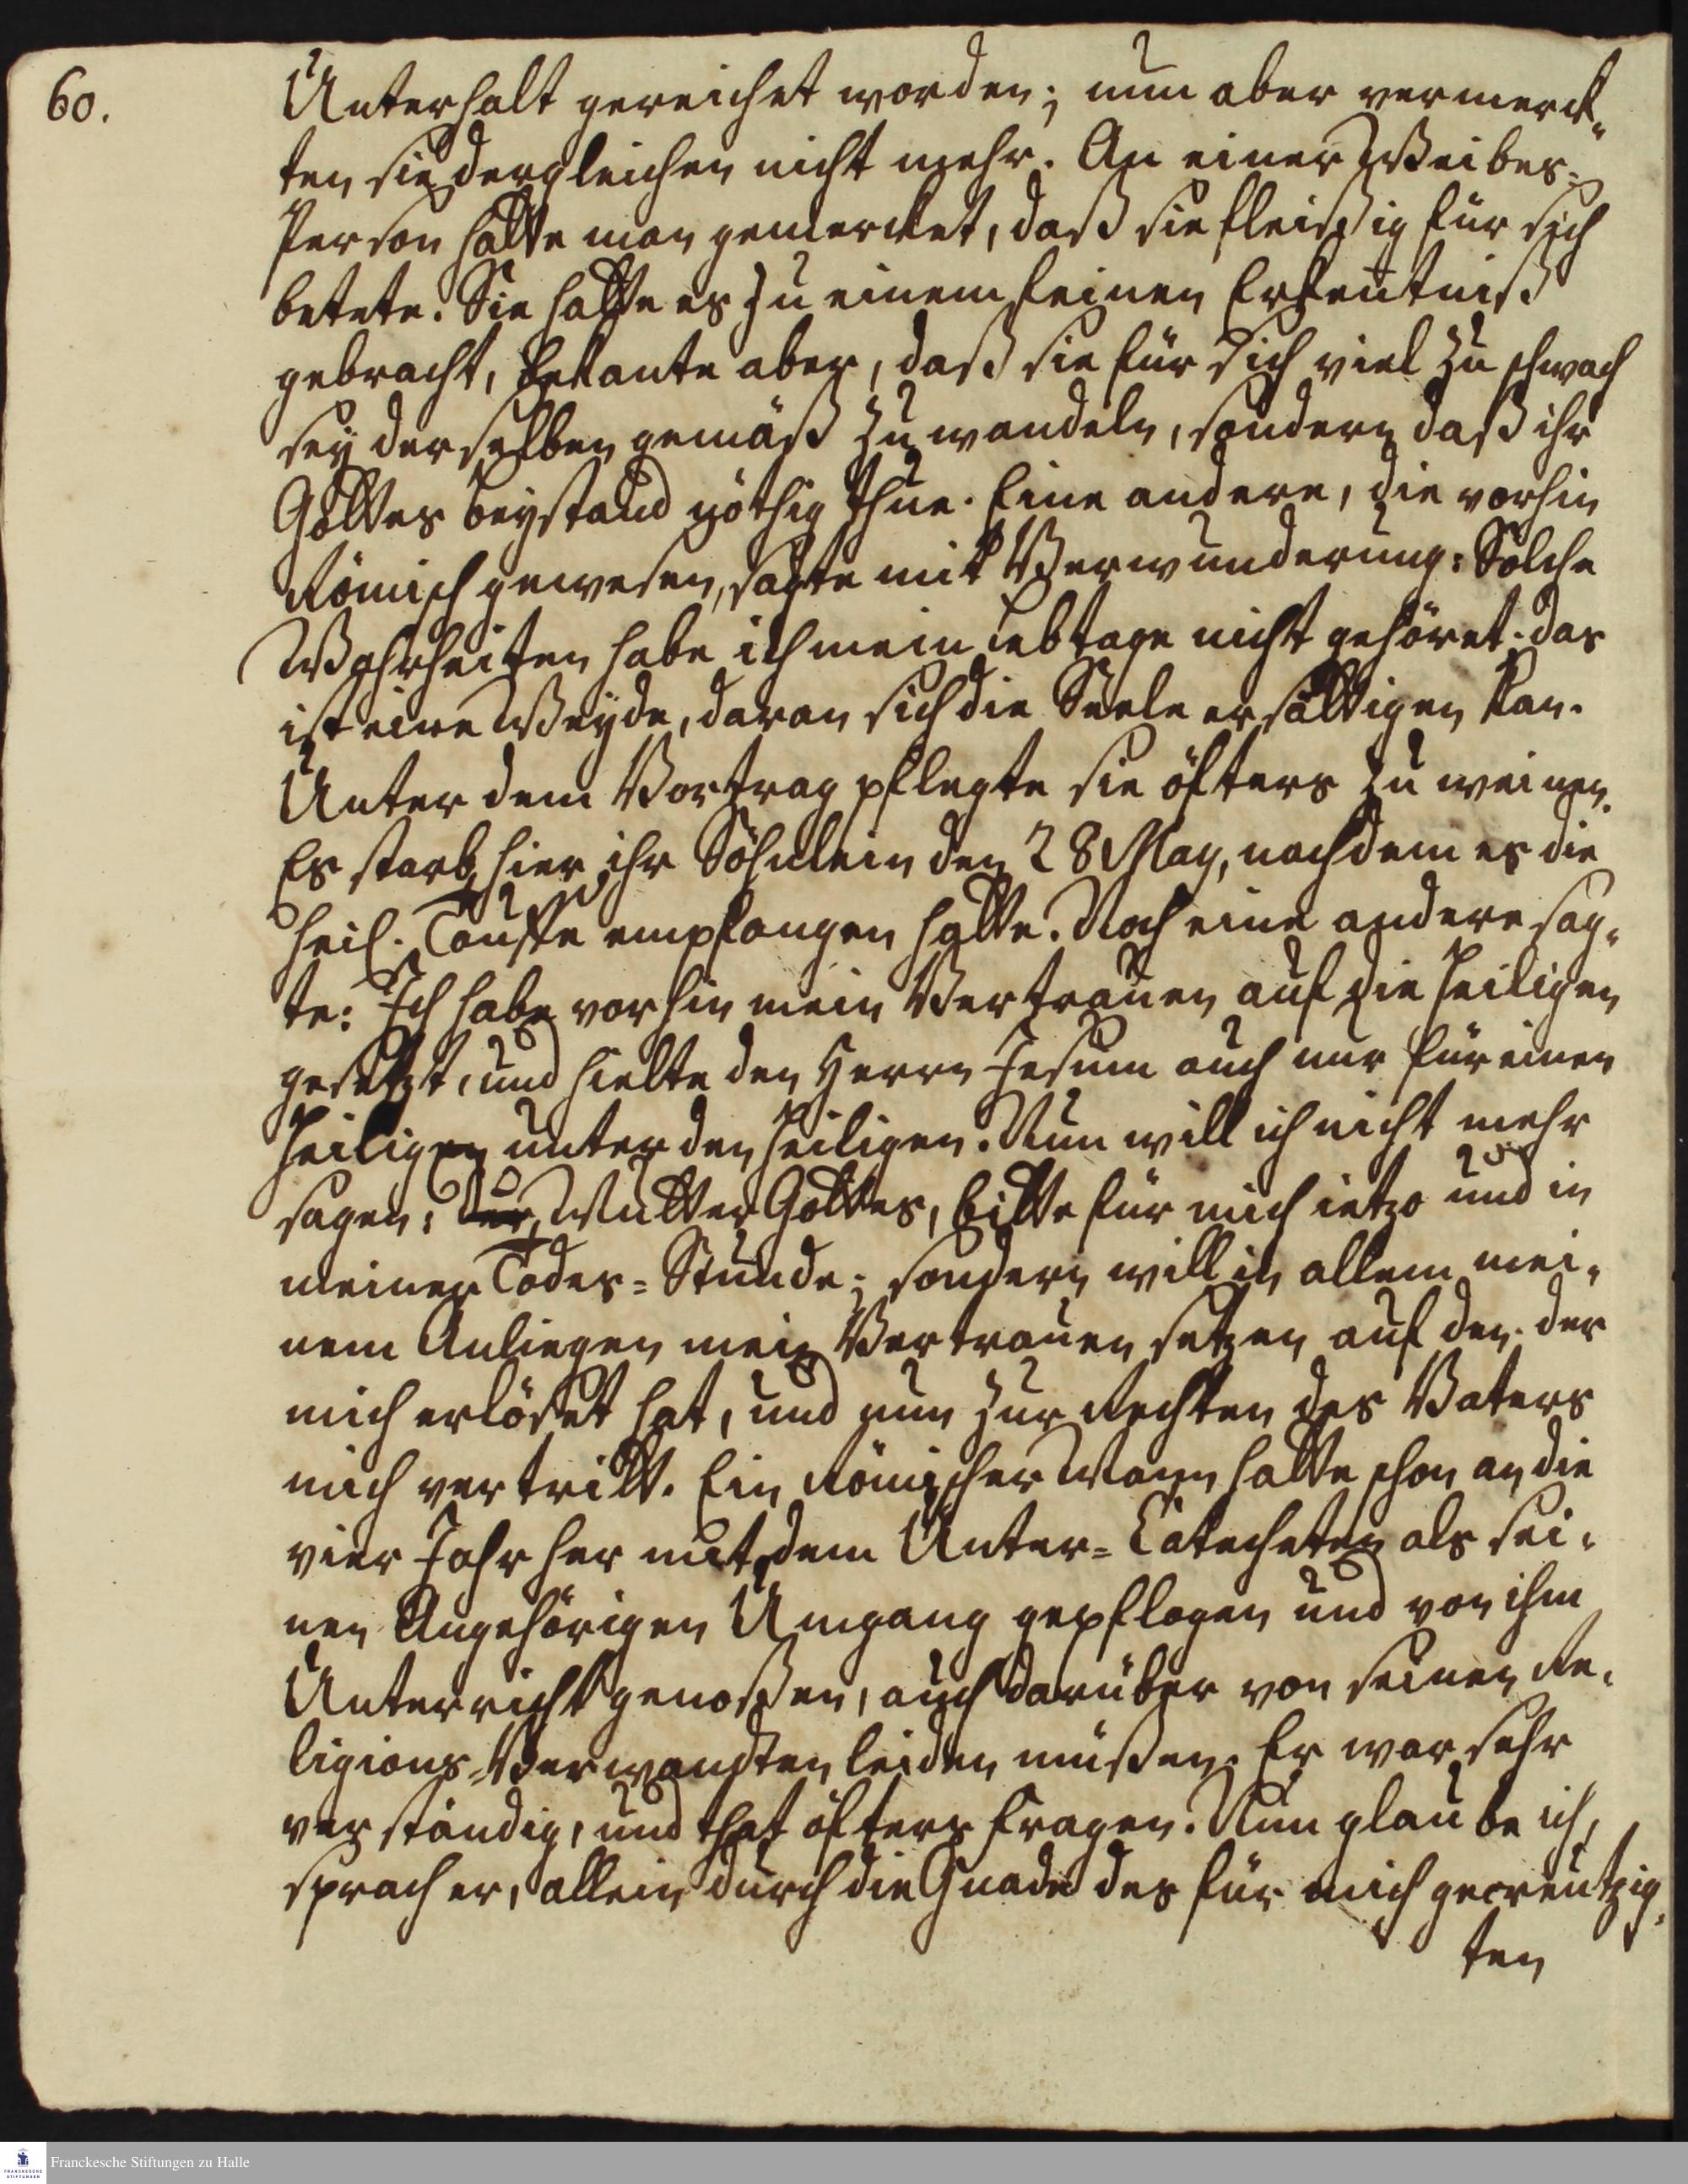 60.
Unterhalt gereichet worden; nun aber vermerck-
ten sie dergleichen nicht mehr. An einer Weibes-
Person hatte man gemercket, daß sie fleißig für sich
betete. Sie hatte es zu einem feinen Erkentniß
gebracht, bekante aber, daß sie für sich viel zu schwach
sey derselben gemäß zu wandeln, sondern daß ihr
Gottes Beystand nöthig thue. Eine andere, die vorhin
Römisch gewesen, sagte mit Verwunderung: Solche
Wahrheiten habe ich mein Lebtage nicht gehöret. das
ist eine Weyde, daran sich die Seele ersättigen kan.
Unter dem Vortrag pflegte sie öfters zu weinen.
Es starb hier ihr Söhnlein den 28 May, nachdem es die
heil. Tauffe empfangen hatte. Noch eine andere sag-
te: Ich habe vorhin mein Vertrauen auf die Heiligen
gesetzt, und hielte den Herrn Jesum auch nur für einen
Heiligen unter den Heiligen. Nun will ich nicht mehr
sagen: Mutter Gottes, bitte für mich ietzo und in
meiner Todes-Stunde; sondern will in allem mei-
nem Anliegen mein Vertrauen setzen auf den der
mich erlöset hat, und nun zur Rechten des Vaters
mich vertritt. Ein Römischer Mann hatte schon an die
vier Jahr her mit dem Unter-Catecheten als sei-
nen Angehörigen Umgang gepflogen und von ihm
Unterricht genoßen, auch darüber von seinen Re-
ligions-Verwandten leiden müßen. Er war sehr
verständig, und that öfters Fragen. Nun glaube ich,
sprach er, allein durch die Gnade des für mich gecreutzig-
ten
Franckesche Stiftungen zu Halle